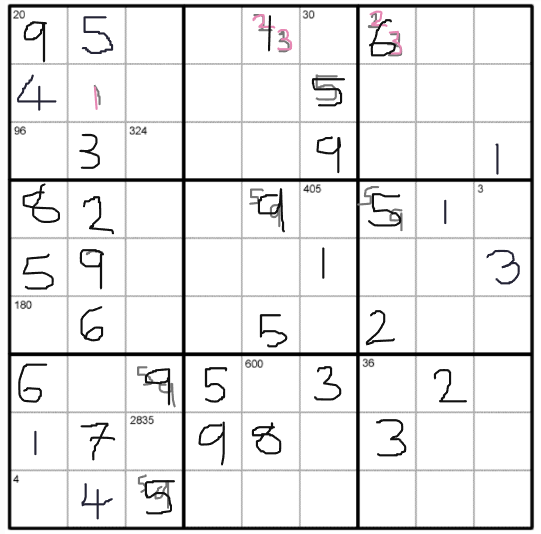 20 9 5 1 2 3 30 6 2 3
4 1 5
96 3 324 9 1
8 2 5 9 9 405 5 5 9 1 3
5 9 1 3
180 6 5 2
6 5 9 9 5 600 3 36 2
1 7 2835 9 8 3
4 4 5 9 5